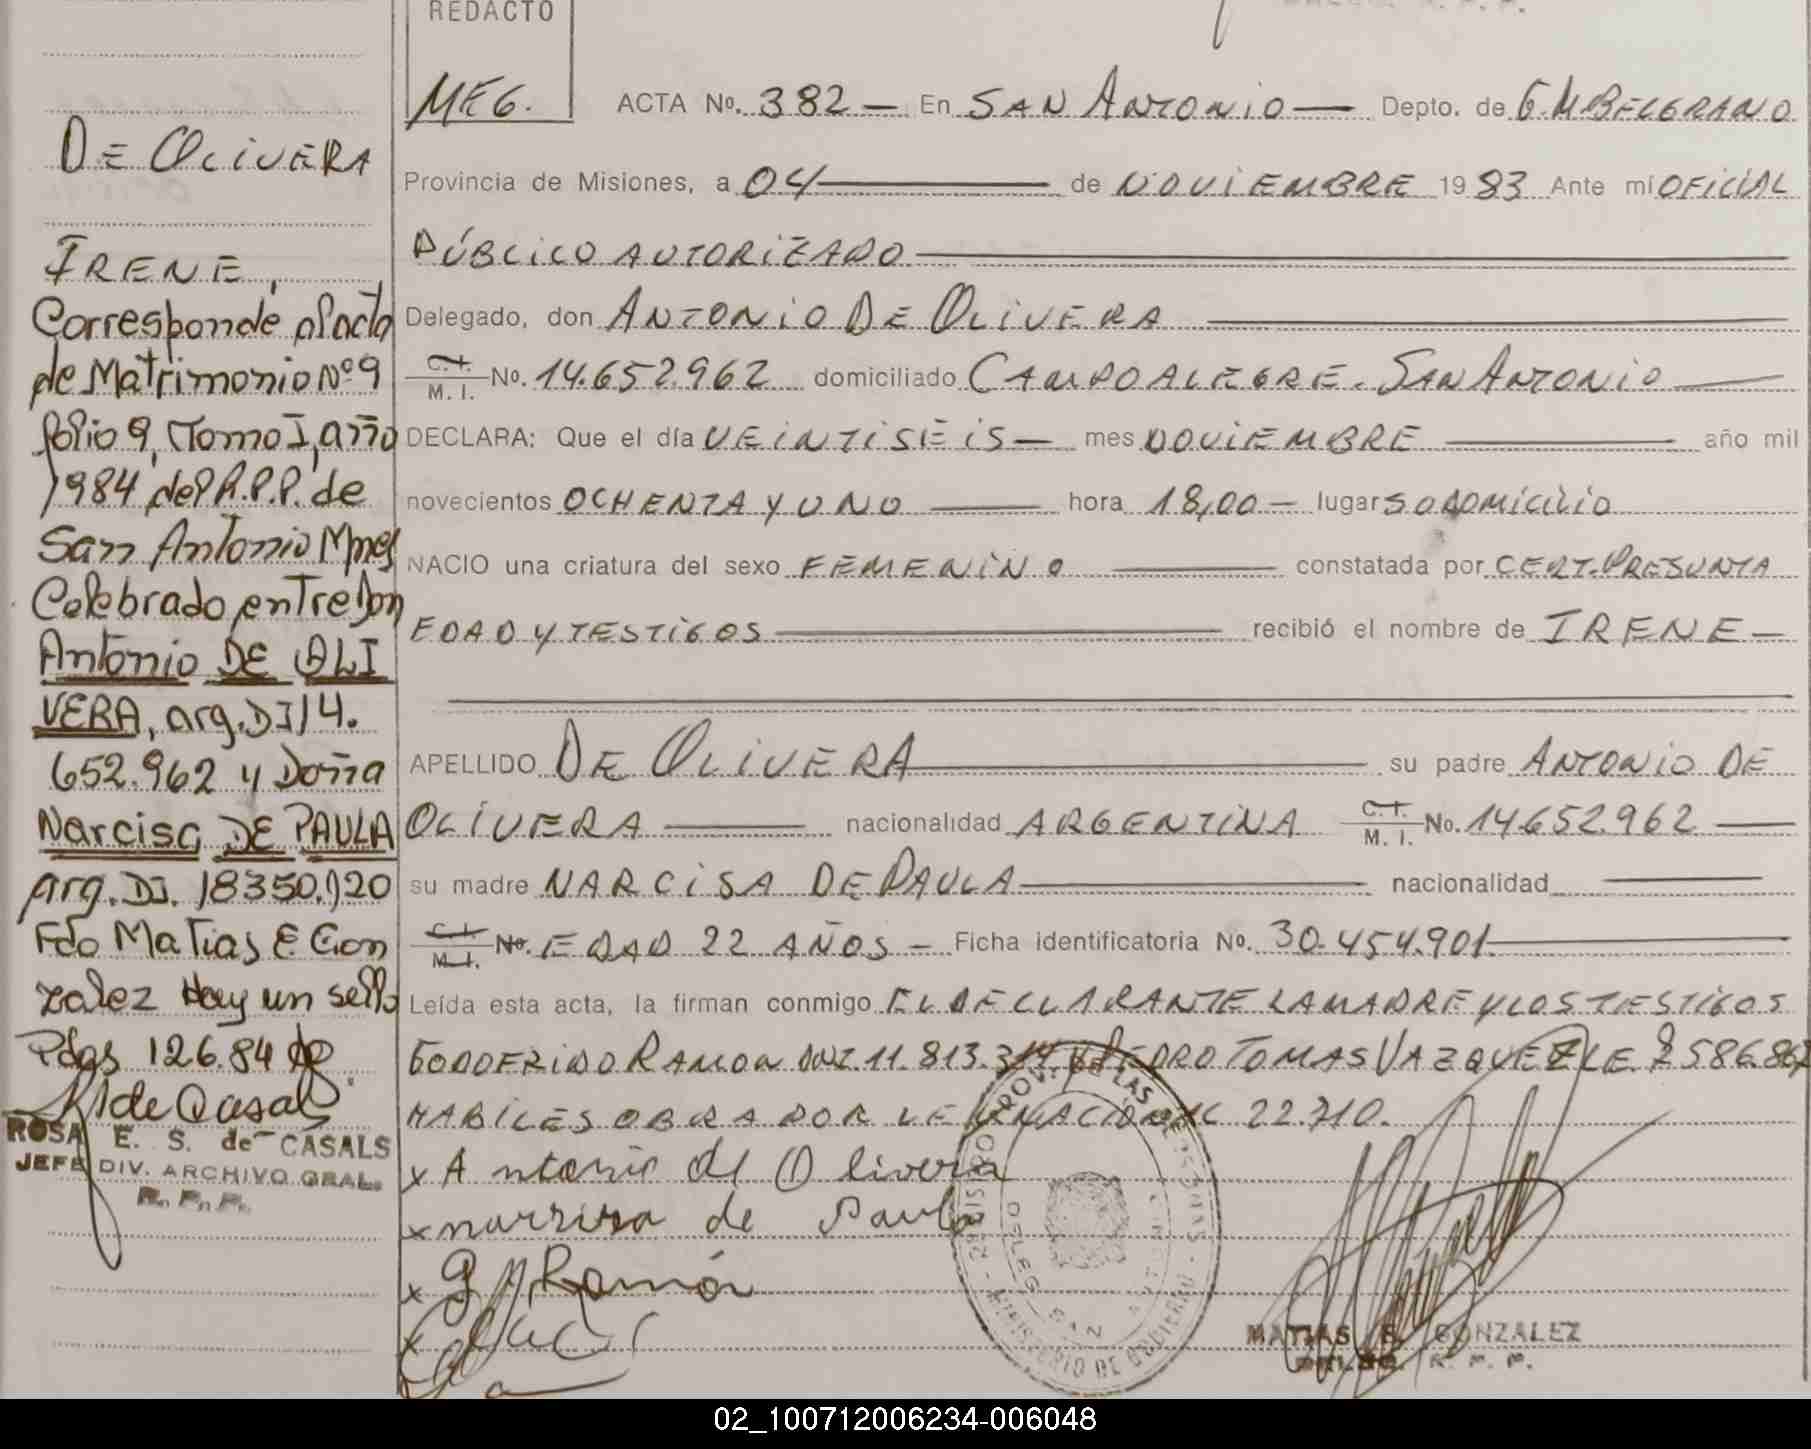 REDACTO
MEG.
DE OLIVERA
IRENE,
Corresponde al acta
de Matrimonio Nº 9
folio 9, Tomo I, año
1984 del R.P.P. de
San Antonio Mnes
Celebrado entre Don
Antonio DE OLI
VERA, arg. DI 14.
652.962 y Doña
Narcisa DE PAULA
arg. DI. 18350.120
Fdo Matias E Gon
zalez Hay un sello
Pdas 126.84
ROSA E. S. de CASALS
JEFE DIV. ARCHIVO GRAL.
R. P. P.
ACTA No. 382 — En SAN ANTONIO — Depto. de G.M.BELGRANO
Provincia de Misiones, a 04 — de NOVIEMBRE 1983 Ante mí OFICIAL
PÚBLICO AUTORIZADO —
Delegado, don ANTONIO DE OLIVERA —
C.I. M.I. No. 14.652.962 domiciliado CAMPO ALEGRE. SAN ANTONIO —
DECLARA: Que el día VEINTISEIS — mes NOVIEMBRE — año mil
novecientos OCHENTA Y UNO — hora 18,00 — lugar SO DOMICILIO
NACIO una criatura del sexo FEMENINO — constatada por CERT. PRESUNTA
EDAD Y TESTIGOS — recibió el nombre de IRENE —
APELLIDO DE OLIVERA — su padre ANTONIO DE
OLIVERA — nacionalidad ARGENTINA C.I. M.I. No. 14.652.962 —
su madre NARCISA DE PAULA — nacionalidad —
C.I. M.I. No. EDAD 22 AÑOS — Ficha identificatoria No. 30.454.901 —
Leída esta acta, la firman conmigo EL DECLARANTE LA MADRE Y LOS TESTIGOS
GODOFRIDO RAMON DNI. 11.813.314 Y PEDRO TOMAS VAZQUEZ LE. 7586.867
HABILES OBRA POR LEY NACIONAL 22.710.
x Antonio de Olivera
x narzisa de Paula
x G Ramón
x
MATIAS E. GONZALEZ
DELEG. R. P. P.
02_100712006234-006048